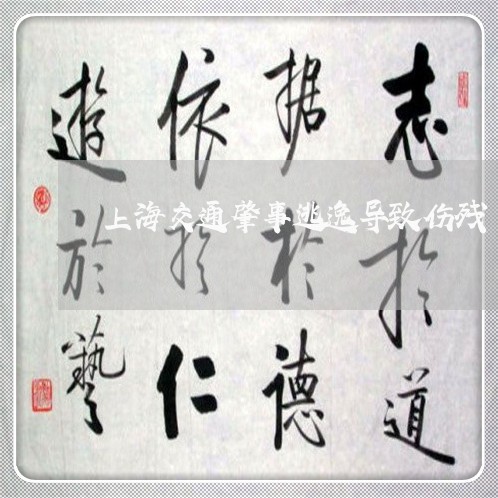 志於道
据於德
依於仁
遊於藝
上海交通肇事逃逸导致伤残